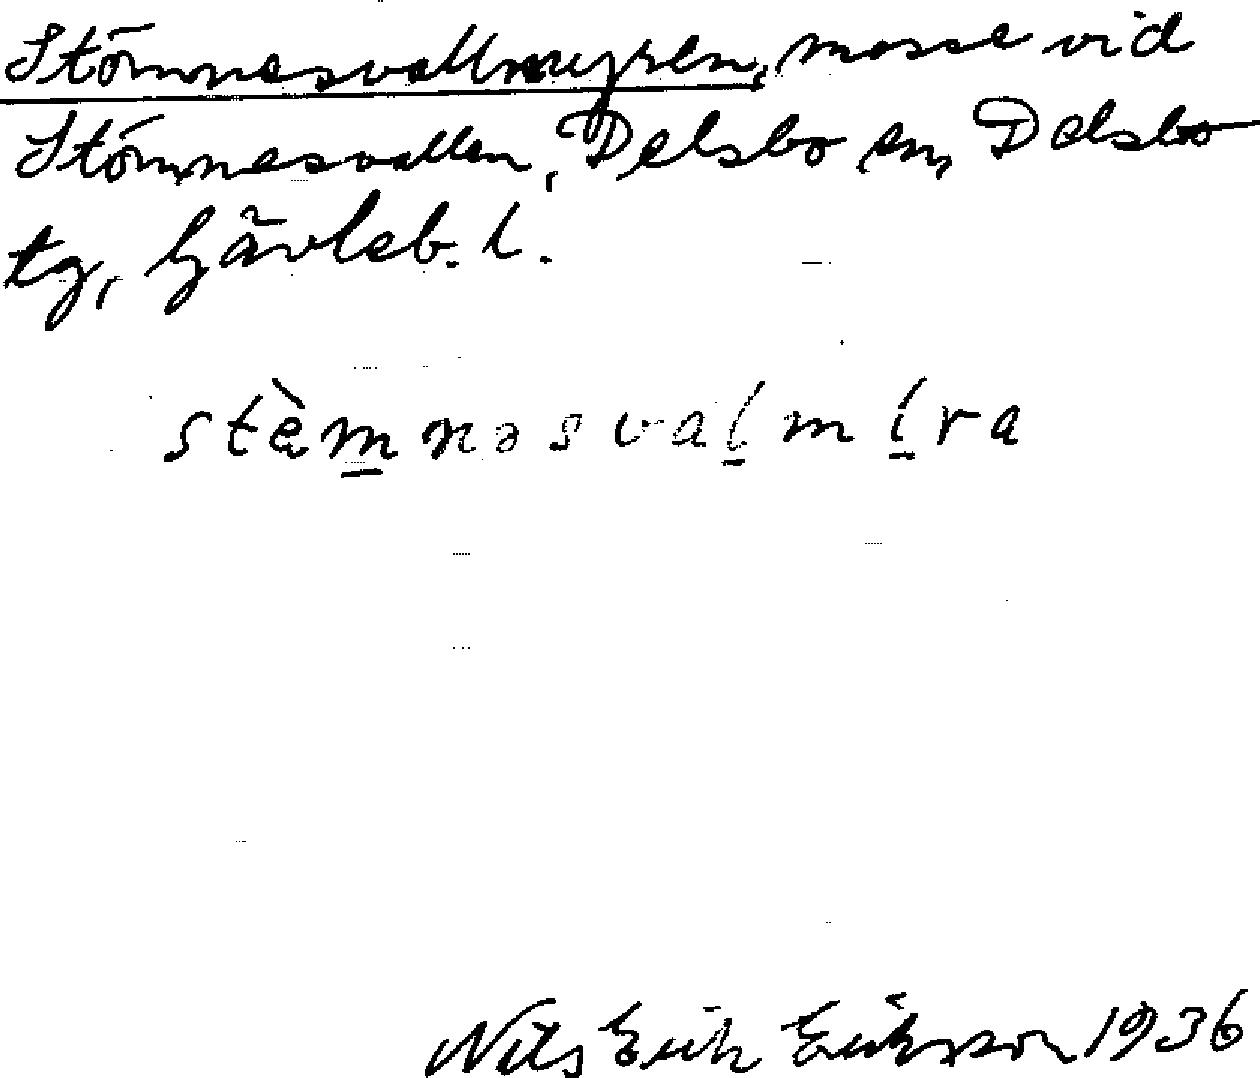 Stömnesvallmyren, mosse vid
Stömnesvallen, Delsbo sn, Delsbo
tg, Gävleb. l.
stèm̲nəsval̲mi̲ra
Nils Erik Eriksson 1936